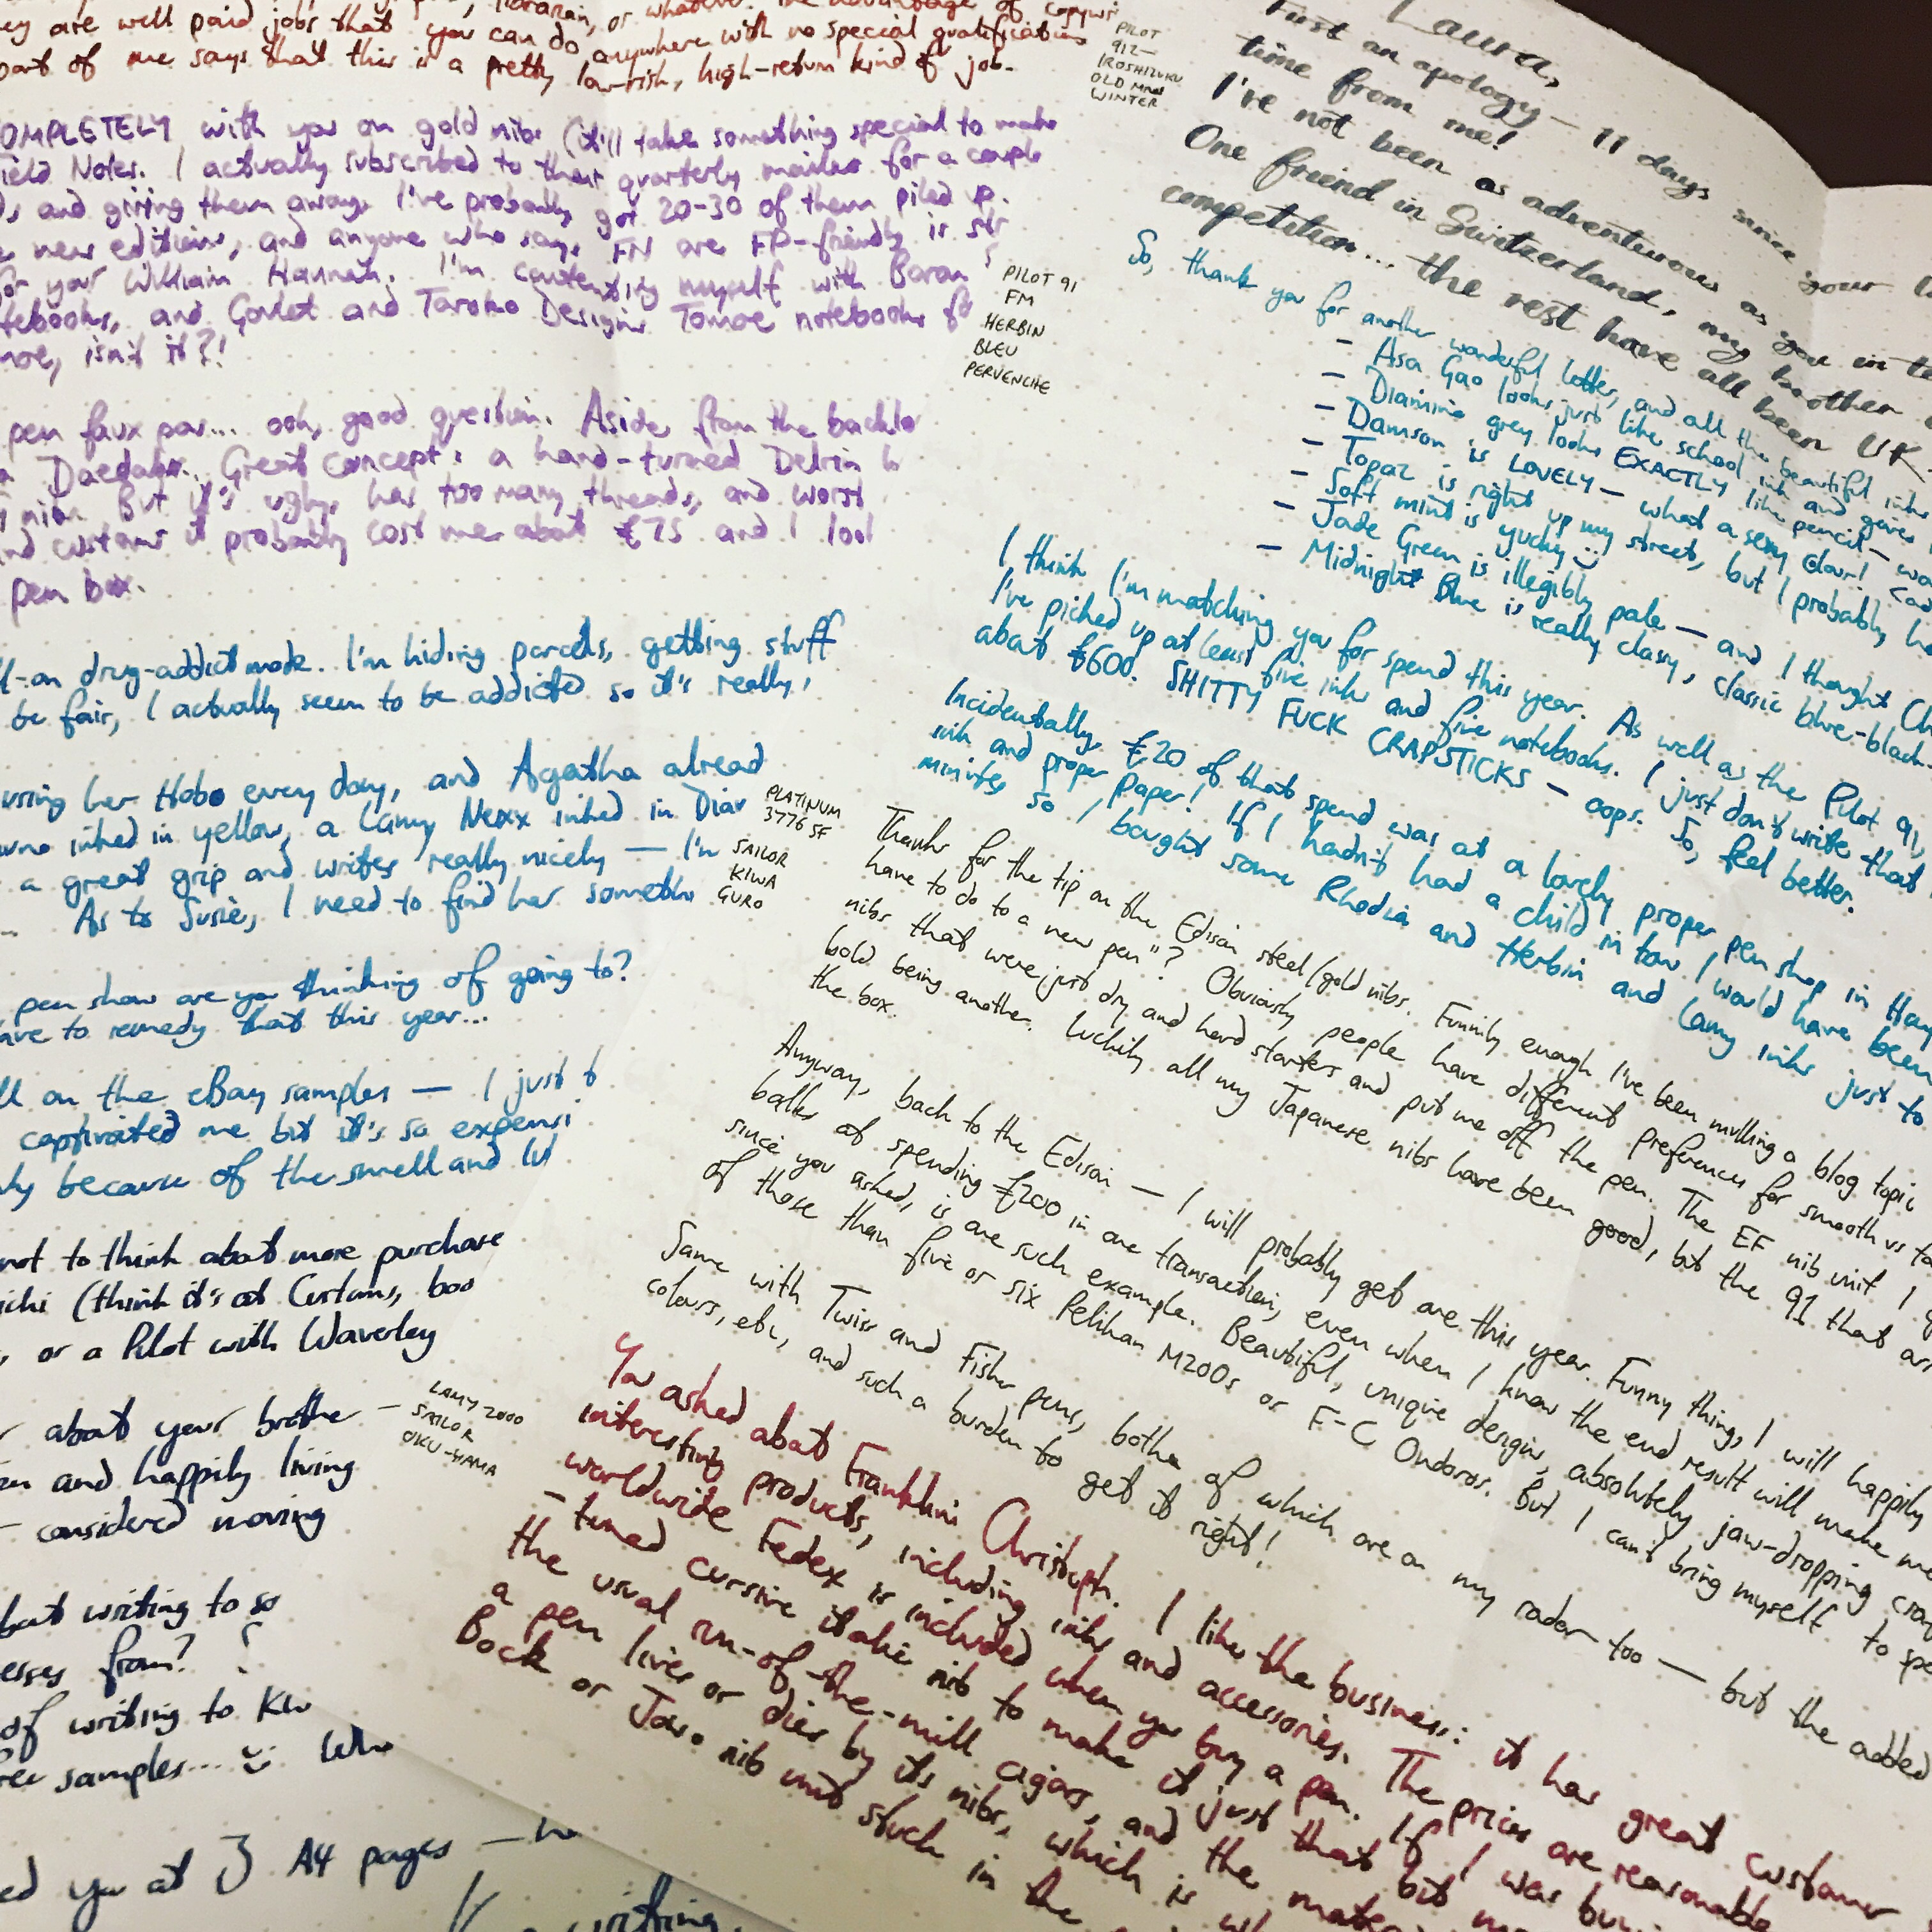 , librarian, or whatever. The advantage of copywri
ey are well paid jobs that you can do anywhere with no special qualifications
part of me says that this is a pretty low-risk, high-return kind of job.
OMPLETELY with you on gold nibs (it'll take something special to make
ield Notes. I actually subscribed to their quarterly mailer for a couple
, and giving them away. I've probably got 20-30 of them piled up.
new editions, and anyone who says FN are FP-friendly is
for your William Hannah. I'm contenting myself with Baron
tebooks, and Goulet and Taroko Designs Tomoe notebooks
moe, isn't it?!
pen faux pas... ooh, good question. Aside from the backlo
a Daedalus. Great concept: a hand-turned Delrin
But it's ugly, has too many threads, and worst
nd customs it probably cost me about £75 and I
pen box.
drug-addict mode. I'm hiding parcels, getting stuff
be fair, I actually seem to be addicted so it's really,
using her Hobo every day, and Agatha alread
inked in yellow, a Lamy Nexx inked in Diam
a great grip and writes really nicely — I'm
As to Susie, I need to find her somethi
pen show are you thinking of going to?
ave to remedy that this year...
ll on the eBay samples — I just
captivated me but it's so expensi
because of the smell and
not to think about more purchase
(think it's at Cultpens, boo
, or a Pilot with Waverley
about your brothe
and happily living
considered moving
but writing to so
esses from?
of writing to
samples... Who
ed you at 3 A4 pages —
writing,
PILOT
912 —
IROSHIZUKU
OLD MAN
WINTER
PILOT 91
FM
HERBIN
BLEU
PERVENCHE
PLATINUM
3776 SF
SAILOR
KIWA
GURO
LAMY 2000
SAILOR
OKU-YAMA
Laura,
First an apology — 11 days since your
time from me!
I've not been as adventurous as you in te
One friend in Switzerland, my brother
competition... the rest have all been UK-
So, thank you for another wonderful letter, and all the beautiful inks
- Asa Gao looks just like school ink and gives
- Diamine grey looks EXACTLY like pencil —
- Damson is LOVELY — what a sexy colour!
- Topaz is right up my street, but I probably
- Soft mint is yucky :)
- Jade Green is illegibly pale — and I thought
- Midnight Blue is really classy, classic blue-black.
I think I'm matching you for spend this year. As well as the Pilot 91,
I've picked up at least five inks and five notebooks. I just don't write that
about £600. SHITTY FUCK CRAPSTICKS — oops. So, feel better.
Incidentally, £20 of that spend was at a lovely proper pen shop in Ha
ink and proper paper! If I hadn't had a child in tow I would have been
minutes so I bought some Rhodia and Herbin and Lamy inks just to
Thanks for the tip on the Edison steel/gold nibs. Funnily enough I've been mulling a blog topic
have to do to a new pen"? Obviously people have different preferences for smooth vs
nibs that were just dry and hard starters and put me off the pen. The EF nib unit I
bold being another. Luckily all my Japanese nibs have been good, but the 91 that
the box.
Anyway, back to the Edison — I will probably get one this year. Funny thing, I will happily
balks at spending £200 in one transaction, even when I know the end result will make me
since you asked, is one such example. Beautiful, unique designs, absolutely jaw-dropping
of those than five or six Pelikan M200s or F-C Ondoros. But I can't bring myself to
Same with Twiss and Fisher pens, both of which are on my radar too — but the added
colours, etc, and such a burden to get it right!
You asked about Franklin Christoph. I like the business: it has great customer
interesting products, including inks and accessories. The prices are reasonable
worldwide Fedex is included when you buy a pen. If I was
-tuned cursive italic nib to make it just that bit
the usual run-of-the-mill cigars, and the
a pen lives or dies by its nibs, which is
Bock or Jowo nib unit stuck in the